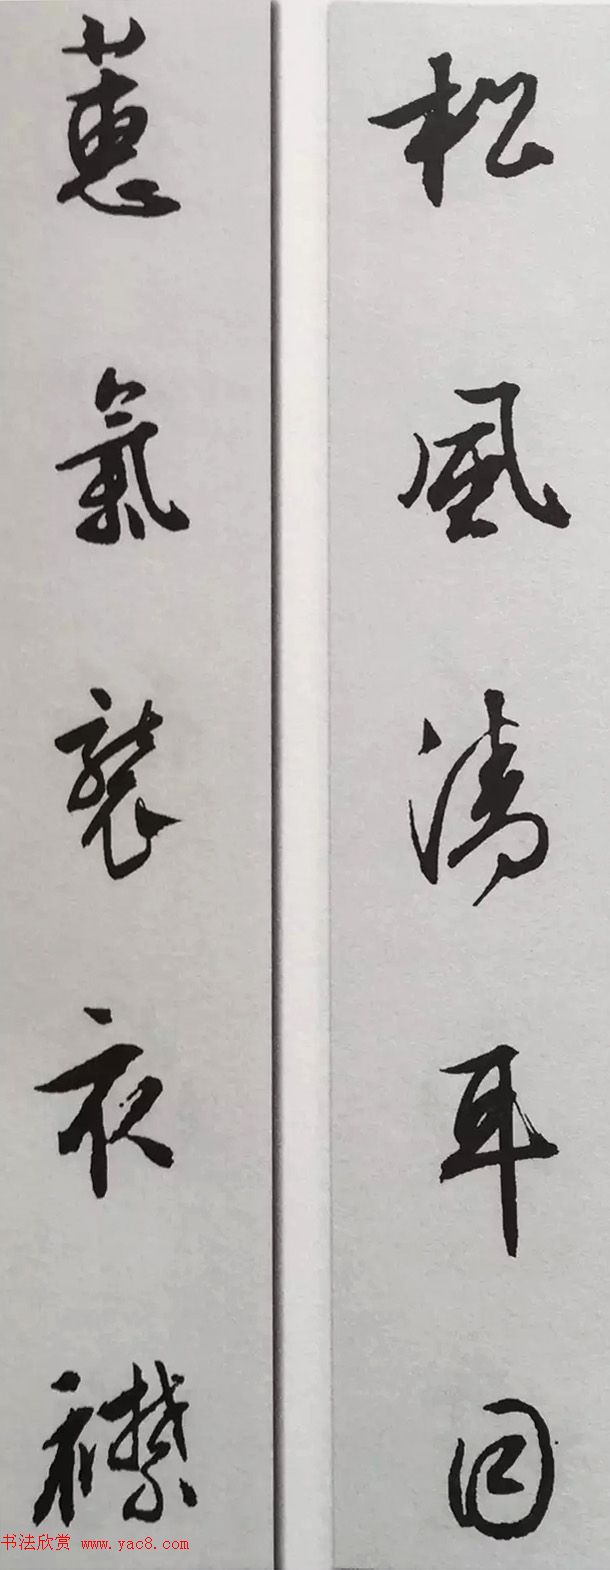 松風清耳目
蕙氣襲衣襟
书法欣赏 www.yac8.com